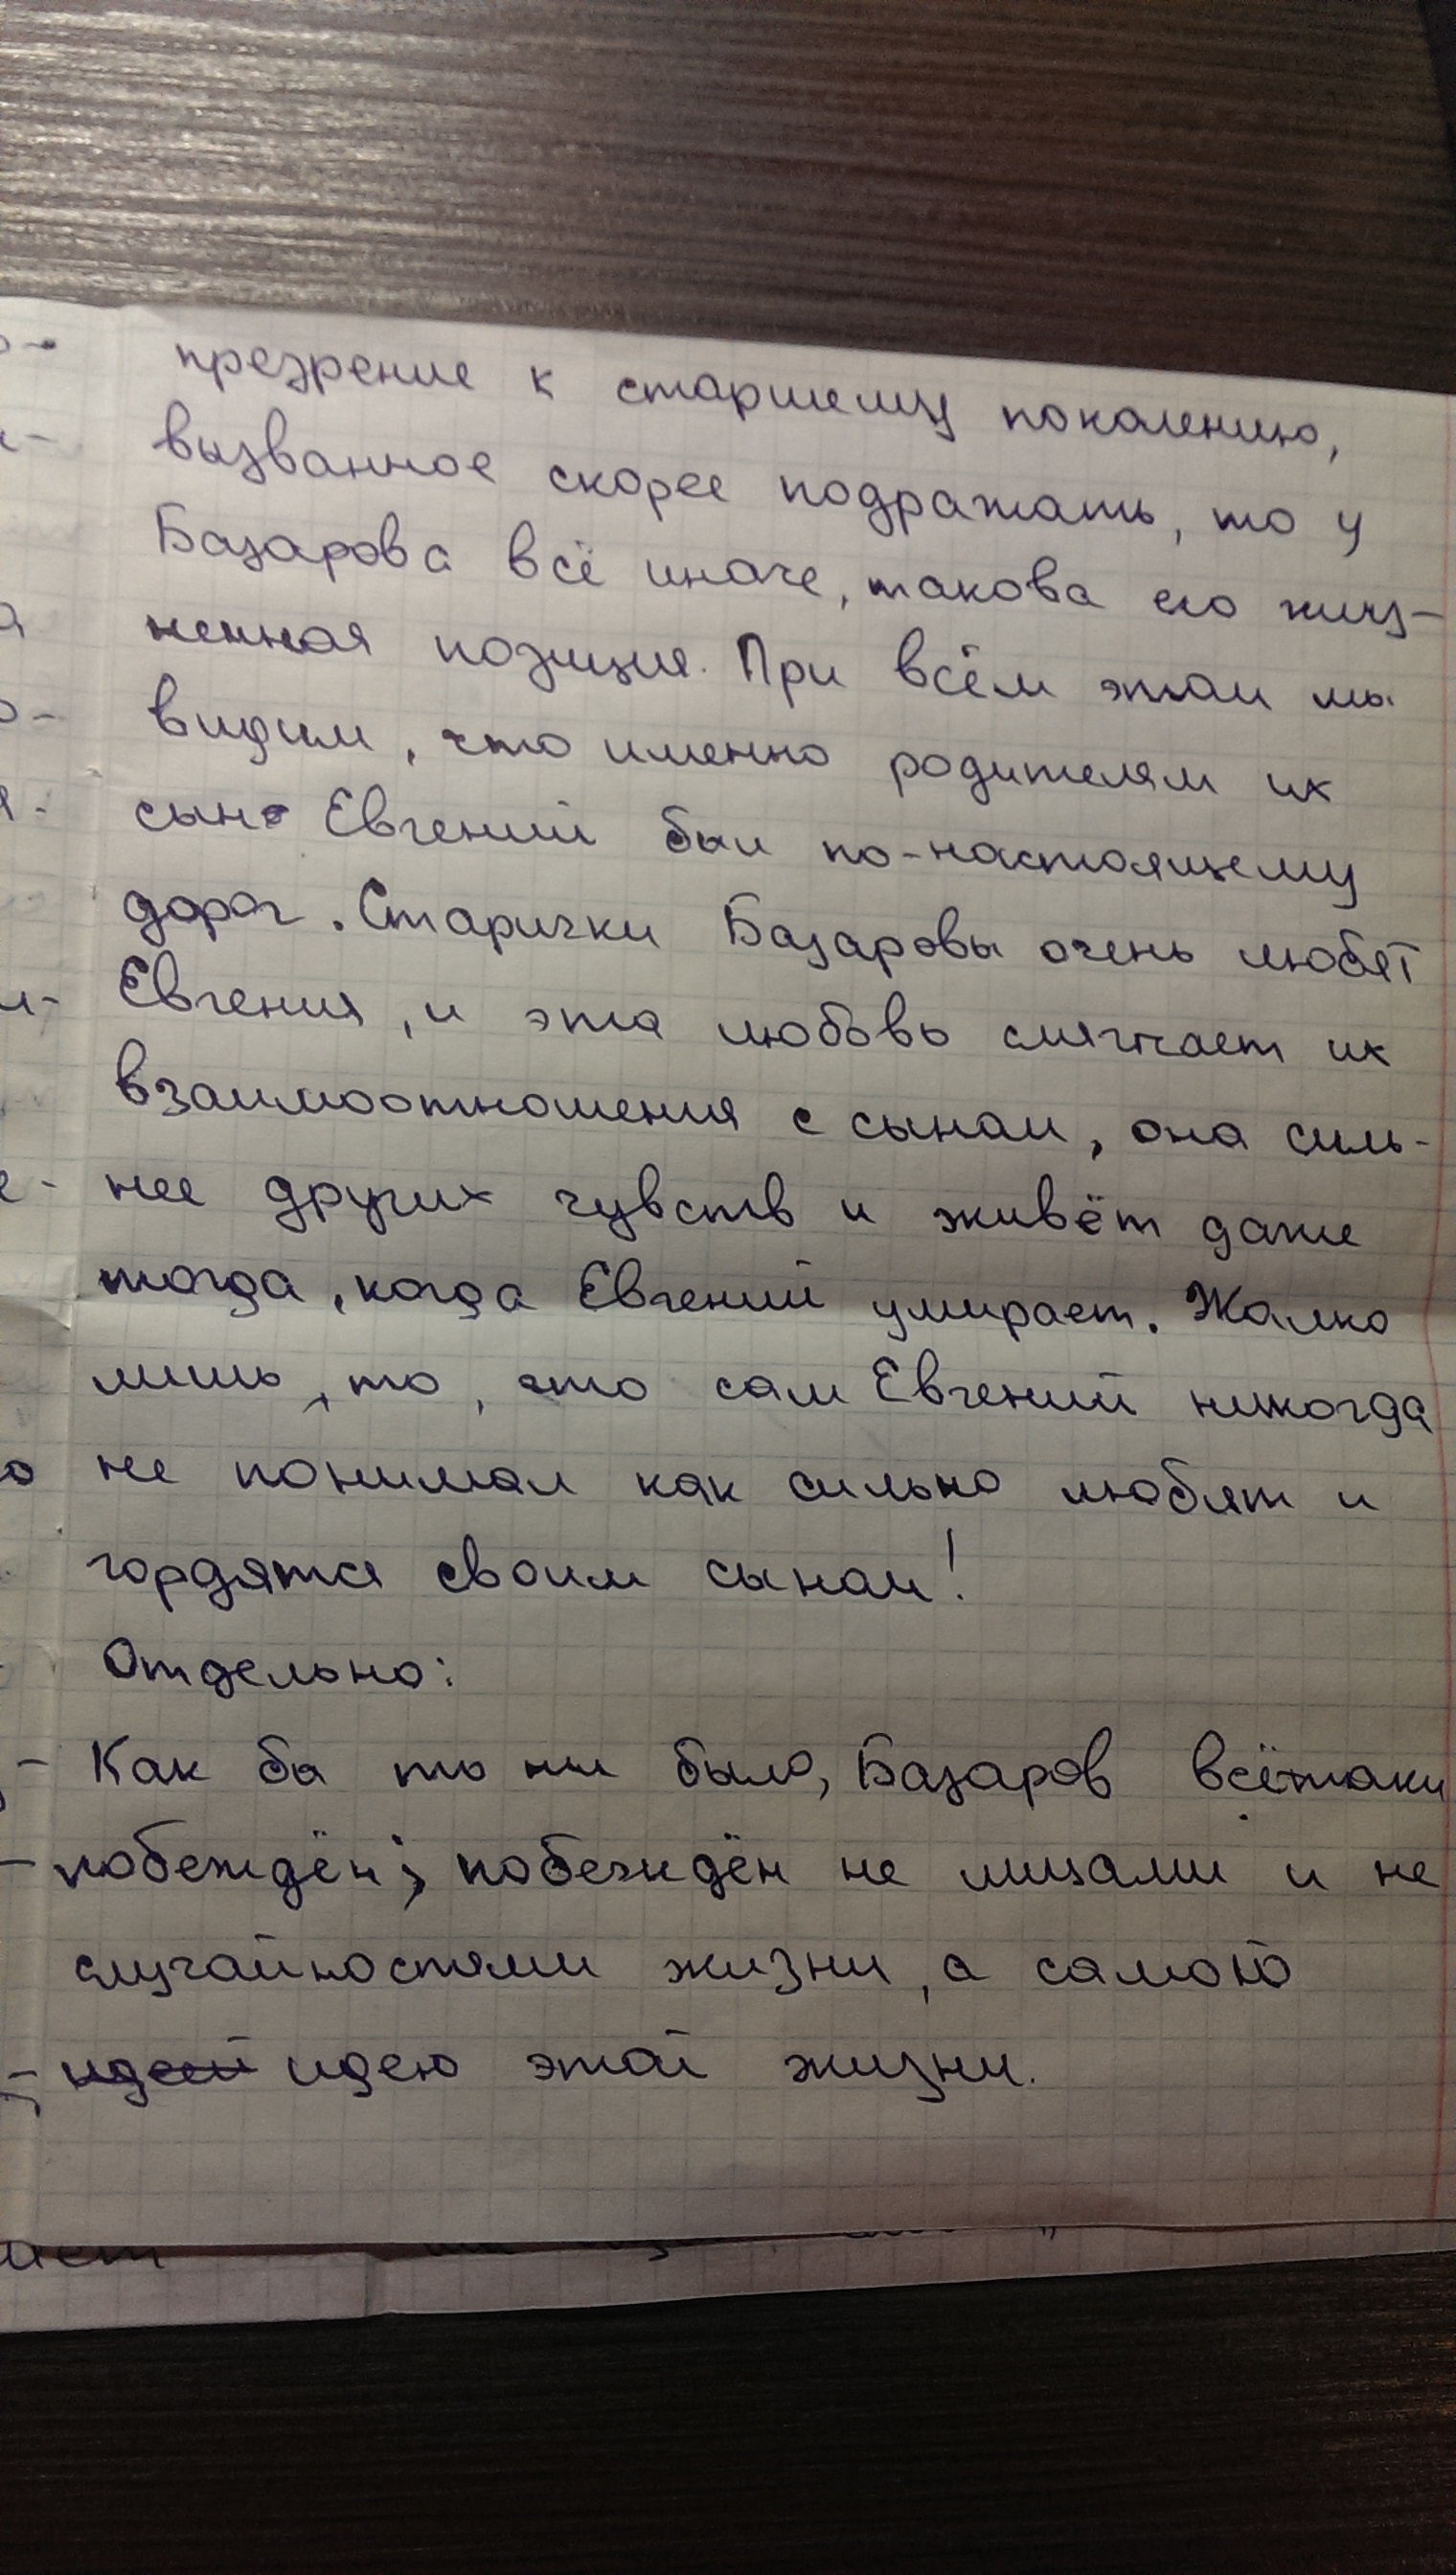 презрение к старшему поколению,
вызванное скорее подражать, то у
Базарова всё иначе, такова его жиз-
ненная позиция. При всём этом мы
видим, что именно родителям их
сын Евгений был по-настоящему
дорог. Старички Базаровы очень любят
Евгения, и эта любовь смягчает их
взаимоотношения с сыном, она силь-
нее других чувств и живёт даже
тогда, когда Евгений умирает. Жалко
лишь, то, что сам Евгений никогда
не понимал как сильно любят и
гордятся своим сыном!
Отдельно:
Как бы то ни было, Базаров всётаки
побеждён; побеждён не лицами и не
случайностями жизни, а самою
идеей идею этой жизни.